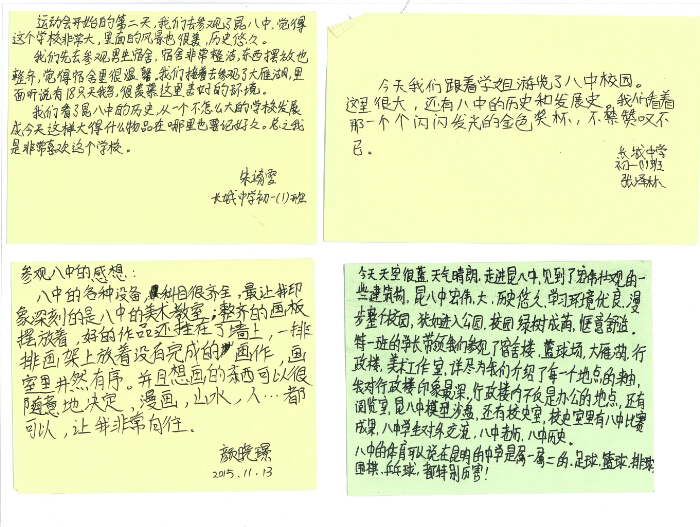 运动会开始的第二天,我们去参观了昆八中,觉得
这个学校非常大,里面的风景也很美,历史悠久。
我们先去参观男生宿舍,宿舍非常整洁,东西摆放也
整齐,觉得宿舍里很温馨,我们接着去参观了大雁湖,里
面听说有18只天鹅,很羡慕这里美好的环境。
我们看了昆八中的历史,从一个不怎么大的学校发展
成今天这样大得什么物品在哪里也要记好久。总之我
是非常喜欢这个学校。
朱靖雯
长城中学初一(1)班
今天我们跟着学姐游览了八中校园。
这里很大,还有八中的历史和发展史,我们看着
那一个个闪闪发光的金色奖杯,不禁赞叹不
已。
长城中学
初一(1)班
张泽林
参观八中的感想:
八中的各种设备,科目很齐全,最让我印
象深刻的是八中的美术教室;整齐的画板
摆放着,好的作品还挂在了墙上,一排
排画架上放着没有完成的画作,画
室里井然有序。并且想画的东西可以很
随意地决定,漫画,山水,人…都
可以,让我非常向往。
颜晓璟
2015.11.13
今天天空很蓝,天气晴朗,走进昆八中,见到了宏伟壮观的一
些建筑物,昆八中宏伟,大,历史悠久,学习环境优良,漫
步整个校园,犹如进入公园,校园绿树成荫,惬意舒适。
特一班的学长带领我们参观了宿舍楼,篮球场,大雁湖,行
政楼,美术工作室,详尽为我们介绍了每一个地点的来由,
我对行政楼印象最深,行政楼内不仅是办公的地点,还有
阅览室,昆八中模型沙盘,还有校史室,校史室里有八中比赛
成果,八中学生对外交流,八中老师,八中历史。
八中的体育可以说在昆明的中学是数一数二的,足球,篮球,排球
围棋,乒乓球,都特别厉害!